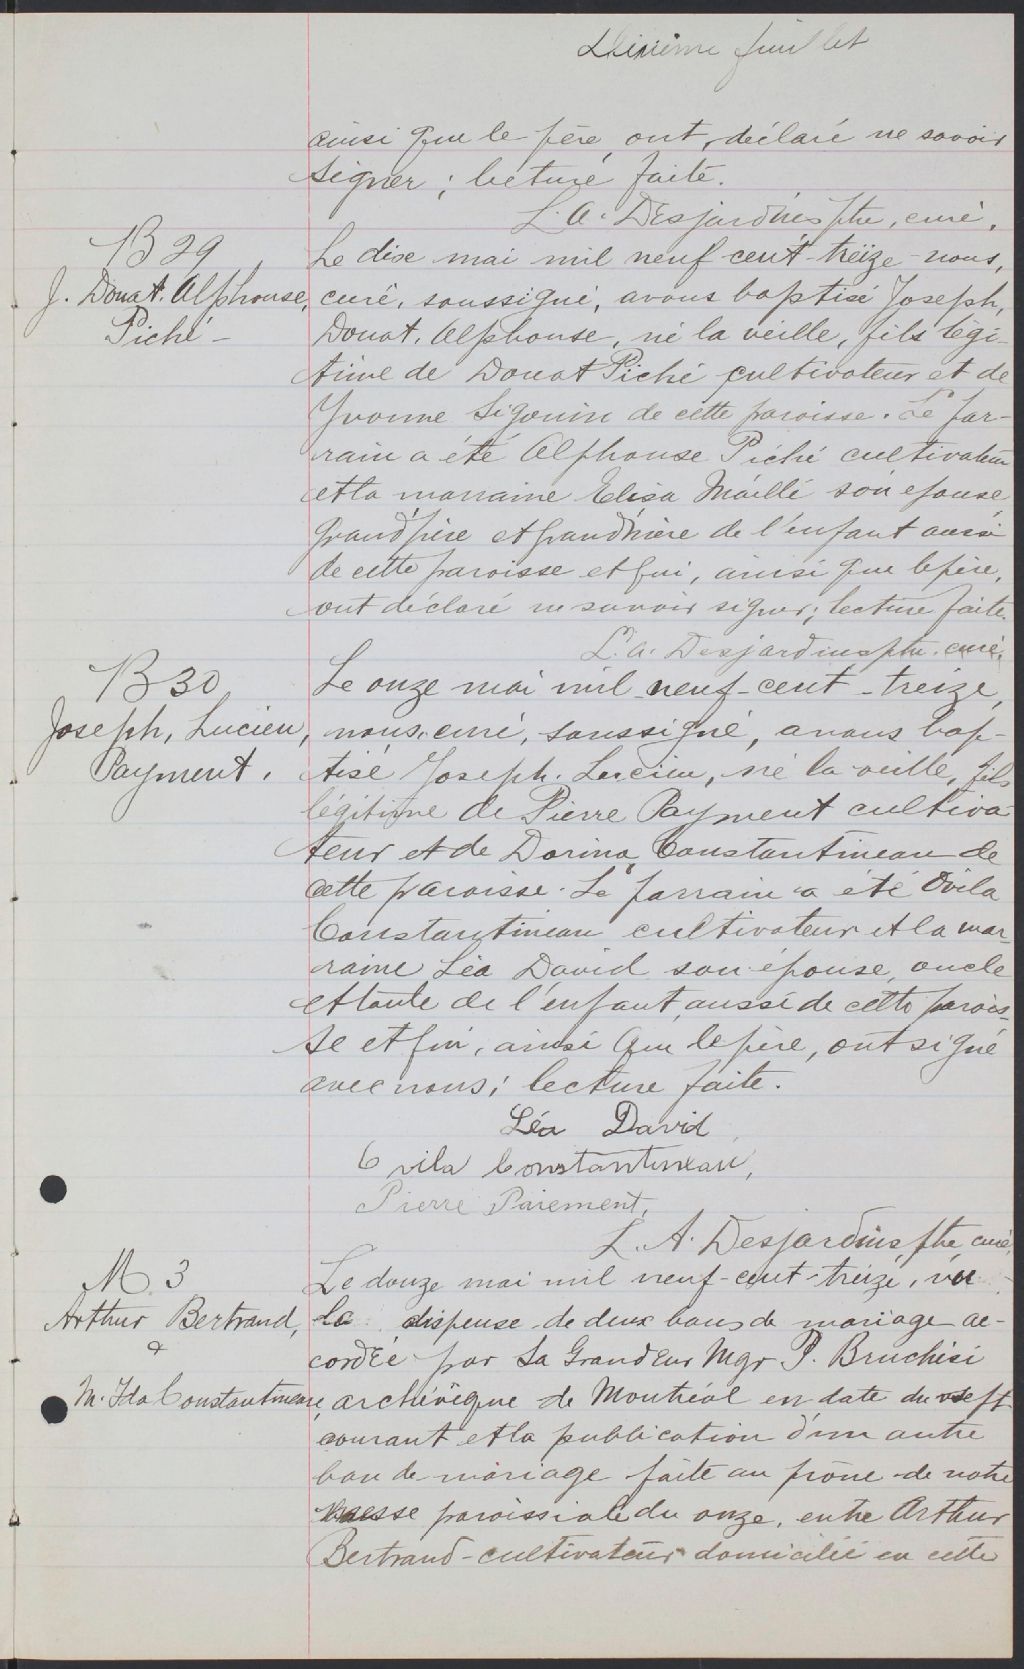 Dixième feuillet
ainsi que le père, ont déclaré ne savoir
signer; lecture faite.
L. A. Desjardins ptre, curé.
B 29
J. Donat. Alphonse,
Piché -
Le dix mai mil neuf cent-treize nous,
curé, soussigné, avons baptisé Joseph,
Donat, Alphonse, né la veille, fils légi-
time de Donat Piché cultivateur et de
Yvonne Sigouin de cette paroisse. Le par-
rain a été Alphonse Piché cultivateur
et la marraine Elisa Maillé son épouse
grand'père et grand'mère de l'enfant aussi
de cette paroisse et qui, ainsi que le père,
ont déclaré ne savoir signer; lecture faite.
L. A. Desjardins ptre. curé.
B 30
Joseph, Lucien,
Payment.
Le onze mai mil neuf-cent-treize,
nous, curé, soussigné, avons bap-
tisé Joseph. Lucien, né la veille, fils
légitime de Pierre Payment cultiva-
teur et de Dorina Constantineau de
cette paroisse. Le parrain a été Ovila
Constantineau cultivateur et la mar-
raine Léa David son épouse, oncle
et tante de l'enfant, aussi de cette parois-
se et qui, ainsi que le père, ont signé
avec nous; lecture faite.
Léa David,
Ovila Constantineau,
Pierre Paiement,
L. A. Desjardins, ptre, curé.
M 3
Arthur Bertrand,
&
M. Ida Constantineau
Le douze mai mil neuf-cent-treize, vu
la dispense de deux bans de mariage ac-
cordée par Sa Grandeur Mgr P. Bruchési
archévêque de Montréal en date du sept
courant et la publication d'un autre
ban de mariage faite au prône de notre
messe paroissiale du onze, entre Arthur
Bertrand-cultivateur domicilié en cette